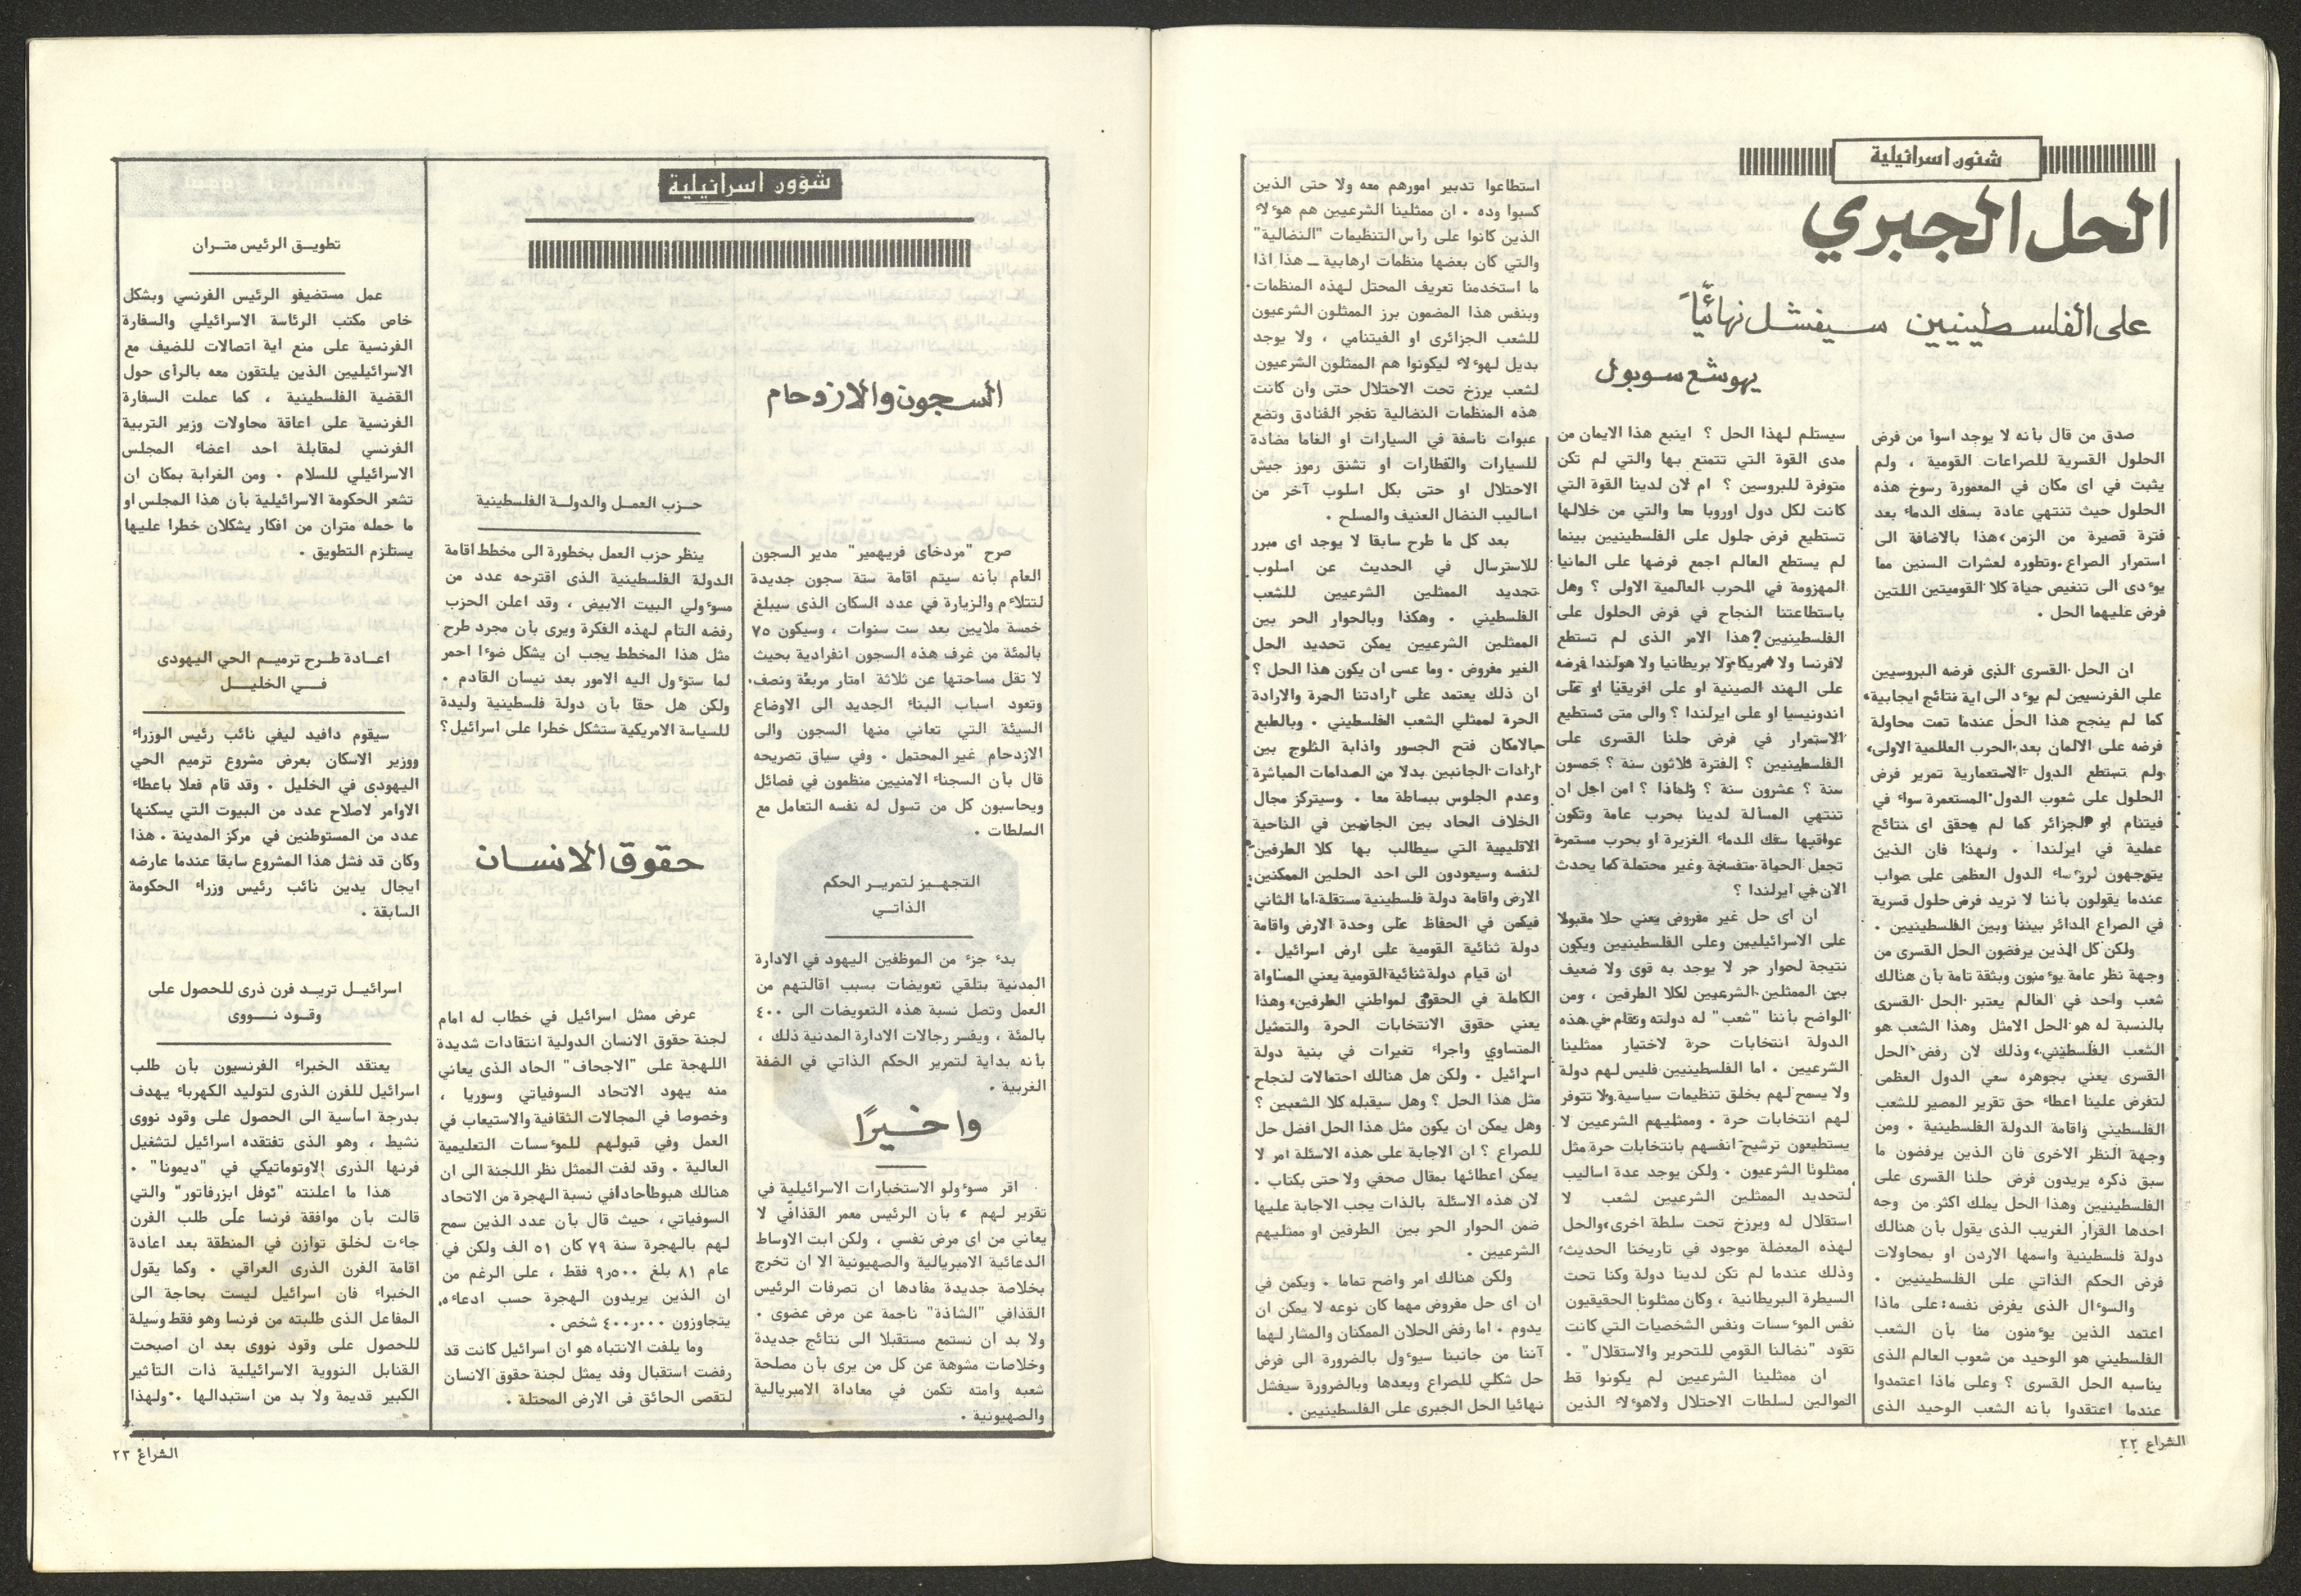 شئون اسرائيلية
الحل الجبري
على الفلسطينيين سيفشل نهائياً
يهوشع سوبول
صدق من قال بأنه لا يوجد اسوأ من فرض
الحلول القسرية للصراعات القومية ، ولم
يثبت في اى مكان في المعمورة رسوخ هذه
الحلول حيث تنتهي عادة بسفك الدماء بعد
فترة قصيرة من الزمن، هذا بالاضافة الى
استمرار الصراع وتطوره لعشرات السنين مما
يوءدى الى تنغيص حياة كلا القوميتين اللتين
فرض عليهما الحل .
ان الحل القسرى الذى فرضه البروسيين
على الفرنسيين لم يوءد الى اية نتائج ايجابية،
كما لم ينجح هذا الحل عندما تمت محاولة
فرضه على الالمان بعد الحرب العالمية الاولى،
ولم تستطع الدول الاستعمارية تمرير فرض
الحلول على شعوب الدول المستعمرة سواء في
فيتنام او الجزائر كما لم يحقق اى نتائج
عملية في ايرلندا . ولهذا فان الذين
يتوجهون لروءساء الدول العظمى على صواب
عندما يقولون بأننا لا نريد فرض حلول قسرية
في الصراع الدائر بيننا وبين الفلسطينيين .
ولكن كل الذين يرفضون الحل القسرى من
وجهة نظر عامة يوءمنون وبثقة تامة بأن هنالك
شعب واحد في العالم يعتبر الحل القسرى
بالنسبة له هو الحل الامثل وهذا الشعب هو
الشعب الفلسطيني، وذلك لان رفض الحل
القسرى يعني بجوهره سعي الدول العظمى
لتفرض علينا اعطاء حق تقرير المصير للشعب
الفلسطيني واقامة الدولة الفلسطينية . ومن
وجهة النظر الاخرى فان الذين يرفضون ما
سبق ذكره يريدون فرض حلنا القسرى على
الفلسطينيين وهذا الحل يملك اكثر من وجه
احدها القرار الغريب الذى يقول بأن هنالك
دولة فلسطينية واسمها الاردن او بمحاولات
فرض الحكم الذاتي على الفلسطينيين .
والسوءال الذى يفرض نفسه: على ماذا
اعتمد الذين يوءمنون منا بأن الشعب
الفلسطيني هو الوحيد من شعوب العالم الذى
يناسبه الحل القسرى ؟ وعلى ماذا اعتمدوا
عندما اعتقدوا بأنه الشعب الوحيد الذى
سيستلم لهذا الحل ؟ اينبع هذا الايمان من
مدى القوة التي تتمتع بها والتي لم تكن
متوفرة للبروسين ؟ ام لان لدينا القوة التي
كانت لكل دول اوروبا معا والتي من خلالها
تستطيع فرض حلول على الفلسطينيين بينما
لم يستطع العالم اجمع فرضها على المانيا
المهزومة في الحرب العالمية الاولى ؟ وهل
باستطاعتنا النجاح في فرض الحلول على
الفلسطينيين؟ هذا الامر الذى لم تستطع
لافرنسا ولا امريكا ولا بريطانيا ولا هولندا فرضه
على الهند الصينية او على افريقيا او على
اندونيسيا او على ايرلندا ؟ والى متى نستطيع
الاستمرار في فرض حلنا القسرى على
الفلسطينيين ؟ الفترة ثلاثون سنة ؟ خمسون
سنة ؟ عشرون سنة ؟ ولماذا ؟ امن اجل ان
تنتهي المسألة لدينا بحرب عامة وتكون
عواقبها سفك الدماء الغزيرة او بحرب مستمرة
تجعل الحياة متفسخة وغير محتملة كما يحدث
الان في ايرلندا ؟
ان اى حل غير مفروض يعني حلا مقبولا
على الاسرائيليين وعلى الفلسطينيين ويكون
نتيجة لحوار حر لا يوجد به قوى ولا ضعيف
بين الممثلين الشرعيين لكلا الطرفين ، ومن
الواضح بأننا "شعب" له دولته وتقام في هذه
الدولة انتخابات حرة لاختيار ممثلينا
الشرعيين . اما الفلسطينيين فليس لهم دولة
ولا يسمح لهم بخلق تنظيمات سياسية ولا تتوفر
لهم انتخابات حرة . وممثليهم الشرعيين لا
يستطيعون ترشيح انفسهم بانتخابات حرة مثل
ممثلونا الشرعيون . ولكن يوجد عدة اساليب
لتحديد الممثلين الشرعيين لشعب لا
استقلال له ويرزخ تحت سلطة اخرى، والحل
لهذه المعضلة موجود في تاريخنا الحديث،
وذلك عندما لم تكن لدينا دولة وكنا تحت
السيطرة البريطانية ، وكان ممثلونا الحقيقيون
نفس الموءسسات ونفس الشخصيات التي كانت
تقود "نضالنا القومي للتحرير والاستقلال" .
ان ممثلينا الشرعيين لم يكونوا قط
الموالين لسلطات الاحتلال ولاهوءلاء الذين
استطاعوا تدبير امورهم معه ولا حتى الذين
كسبوا وده . ان ممثلينا الشرعيين هم هوءلاء
الذين كانوا على رأس التنظيمات "النضالية"
والتي كان بعضها منظمات ارهابية ــ هذا اذا
ما استخدمنا تعريف المحتل لهذه المنظمات.
وبنفس هذا المضمون برز الممثلون الشرعيون
للشعب الجزائرى او الفيتنامي ، ولا يوجد
بديل لهوءلاء ليكونوا هم الممثلون الشرعيون
لشعب يرزخ تحت الاحتلال حتى وان كانت
هذه المنظمات النضالية تفجر الفنادق وتضع
عبوات ناسفة في السيارات او الغاما مضادة
للسيارات والقطارات او تشنق رموز جيش
الاحتلال او حتى بكل اسلوب آخر من
اساليب النضال العنيف والمسلح .
بعد كل ما طرح سابقا لا يوجد اى مبرر
للاسترسال في الحديث عن اسلوب
تجديد الممثلين الشرعيين للشعب
الفلسطيني . وهكذا وبالحوار الحر بين
الممثلين الشرعيين يمكن تحديد الحل
الغير مفروض . وما عسى ان يكون هذا الحل ؟
ان ذلك يعتمد على ارادتنا الحرة والارادة
الحرة لممثلي الشعب الفلسطيني . وبالطبع
بالامكان فتح الجسور واذابة الثلوج بين
ارادات الجانبين بدلا من الصدامات المباشرة
وعدم الجلوس ببساطة معا . وسيتركز مجال
الخلاف الحاد بين الجانبين في الناحية
الاقليمية التي سيطالب بها كلا الطرفين
لنفسه وسيعودون الى احد الحلين الممكنين
الارض واقامة دولة فلسطينية مستقلة. اما الثاني
فيكمن في الحفاظ على وحدة الارض واقامة
دولة ثنائية القومية على ارض اسرائيل .
ان قيام دولة ثنائية القومية يعني المساواة
الكاملة في الحقوق لمواطني الطرفين، وهذا
يعني حقوق الانتخابات الحرة والتمثيل
المتساوي واجراء تغيرات في بنية دولة
اسرائيل . ولكن هل هنالك احتمالات لنجاح
مثل هذا الحل ؟ وهل سيقبله كلا الشعبين ؟
وهل يمكن ان يكون مثل هذا الحل افضل حل
للصراع ؟ ان الاجابة على هذه الاسئلة امر لا
يمكن اعطائها بمقال صحفي ولا حتى بكتاب .
لان هذه الاسئلة بالذات يجب الاجابة عليها
ضمن الحوار الحر بين الطرفين او ممثليهم
الشرعيين .
ولكن هنالك امر واضح تماما . ويكمن في
ان اى حل مفروض مهما كان نوعه لا يمكن ان
يدوم . اما رفض الحلان الممكنان والمشار لهما
آننا من جانبنا سيوءول بالضرورة الى فرض
حل شكلي للصراع وبعدها وبالضرورة سيفشل
نهائيا الحل الجبرى على الفلسطينيين .
الشراع ٢٢
شؤون اسرائيلية
السجون والازدحام
صرح "مردخاى فريهمير" مدير السجون
العام بأنه سيتم اقامة ستة سجون جديدة
لتتلاءم والزيارة في عدد السكان الذى سيبلغ
خمسة ملايين بعد ست سنوات ، وسيكون ٧٥
بالمئة من غرف هذه السجون انفرادية بحيث
لا تقل مساحتها عن ثلاثة امتار مربعة ونصف.
وتعود اسباب البناء الجديد الى الاوضاع
السيئة التي تعاني منها السجون والى
الازدحام غير المحتمل . وفي سياق تصريحه
قال بأن السجناء الامنيين منظمون في فصائل
ويحاسبون كل من تسول له نفسه التعامل مع
السلطات .
التجهيز لتمرير الحكم
الذاتي
بدء جزء من الموظفين اليهود في الادارة
المدنية بتلقي تعويضات بسبب اقالتهم من
العمل وتصل نسبة هذه التعويضات الى ٤٠٠
بالمئة ، ويفسر رجالات الادارة المدنية ذلك ،
بأنه بداية لتمرير الحكم الذاتي في الضفة
الغربية .
واخيرًا
اقر مسوءولو الاستخبارات الاسرائيلية في
تقرير لهم ، بأن الرئيس معمر القذافي لا
يعاني من اى مرض نفسي ، ولكن ابت الاوساط
الدعائية الامبريالية والصهيونية الا ان تخرج
بخلاصة جديدة مفادها ان تصرفات الرئيس
القذافي "الشاذة" ناجمة عن مرض عضوى .
ولا بد ان نستمع مستقبلا الى نتائج جديدة
وخلاصات مشوهة عن كل من يرى بأن مصلحة
شعبه وامته تكمن في معاداة الامبريالية
والصهيونية .
حزب العمل والدولة الفلسطينية
ينظر حزب العمل بخطورة الى مخطط اقامة
الدولة الفلسطينية الذى اقترحه عدد من
مسوءولي البيت الابيض ، وقد اعلن الحزب
رفضه التام لهذه الفكرة ويرى بأن مجرد طرح
مثل هذا المخطط يجب ان يشكل ضوءا احمر
لما ستوءول اليه الامور بعد نيسان القادم .
ولكن هل حقا بأن دولة فلسطينية وليدة
للسياسة الامريكية ستشكل خطرا على اسرائيل؟
حقوق الانسان
عرض ممثل اسرائيل في خطاب له امام
لجنة حقوق الانسان الدولية انتقادات شديدة
اللهجة على "الاجحاف" الحاد الذى يعاني
منه يهود الاتحاد السوفياتي وسوريا ،
وخصوصا في المجالات الثقافية والاستيعاب في
العمل وفي قبولهم للموءسسات التعليمية
العالية . وقد لفت الممثل نظر اللجنة الى ان
هنالك هبوطاحادافي نسبة الهجرة من الاتحاد
السوفياتي، حيث قال بأن عدد الذين سمح
لهم بالهجرة سنة ٧٩ كان ٥١ الف ولكن في
عام ٨١ بلغ ٩٫٥٠٠ فقط ، على الرغم من
ان الذين يريدون الهجرة حسب ادعاءه،
يتجاوزون ٤٠٠٫٠٠٠ شخص .
وما يلفت الانتباه هو ان اسرائيل كانت قد
رفضت استقبال وفد يمثل لجنة حقوق الانسان
لتقصى الحائق فى الارض المحتلة .
تطويق الرئيس متران
عمل مستضيفو الرئيس الفرنسي وبشكل
خاص مكتب الرئاسة الاسرائيلي والسفارة
الفرنسية على منع اية اتصالات للضيف مع
الاسرائيليين الذين يلتقون معه بالرأى حول
القضية الفلسطينية ، كما عملت السفارة
الفرنسية على اعاقة محاولات وزير التربية
الفرنسي لمقابلة احد اعضاء المجلس
الاسرائيلي للسلام . ومن الغرابة بمكان ان
تشعر الحكومة الاسرائيلية بأن هذا المجلس او
ما حمله متران من افكار يشكلان خطرا عليها
يستلزم التطويق .
اعادة طرح ترميم الحي اليهودى
في الخليل
سيقوم دافيد ليفي نائب رئيس الوزراء
ووزير الاسكان بعرض مشروع ترميم الحي
اليهودى في الخليل . وقد قام فعلا باعطاء
الاوامر لاصلاح عدد من البيوت التي يسكنها
عدد من المستوطنين في مركز المدينة . هذا
وكان قد فشل هذا المشروع سابقا عندما عارضه
ايجال يدين نائب رئيس وزراء الحكومة
السابقة .
اسرائيل تريد فرن ذرى للحصول على
وقود نووى
يعتقد الخبراء الفرنسيون بأن طلب
اسرائيل للفرن الذرى لتوليد الكهرباء يهدف
بدرجة اسأسية الى الحصول على وقود نووى
نشيط ، وهو الذى تفتقده اسرائيل لتشغيل
فرنها الذرى الاوتوماتيكي في "ديمونا" .
هذا ما اعلنته "نوفل ابزرفاتور" والتي
قالت بأن موافقة فرنسا على طلب الفرن
جاءت لخلق توازن في المنطقة بعد اعادة
اقامة الفرن الذرى العراقي . وكما يقول
الخبراء فان اسرائيل ليست بحاجة الى
المفاعل الذى طلبته من فرنسا وهو فقط وسيلة
للحصول على وقود نووى بعد ان اصبحت
القنابل النووية الاسرائيلية ذات التأثير
الكبير قديمة ولا بد من استبدالها . ولهذا
الشراع ٢٣